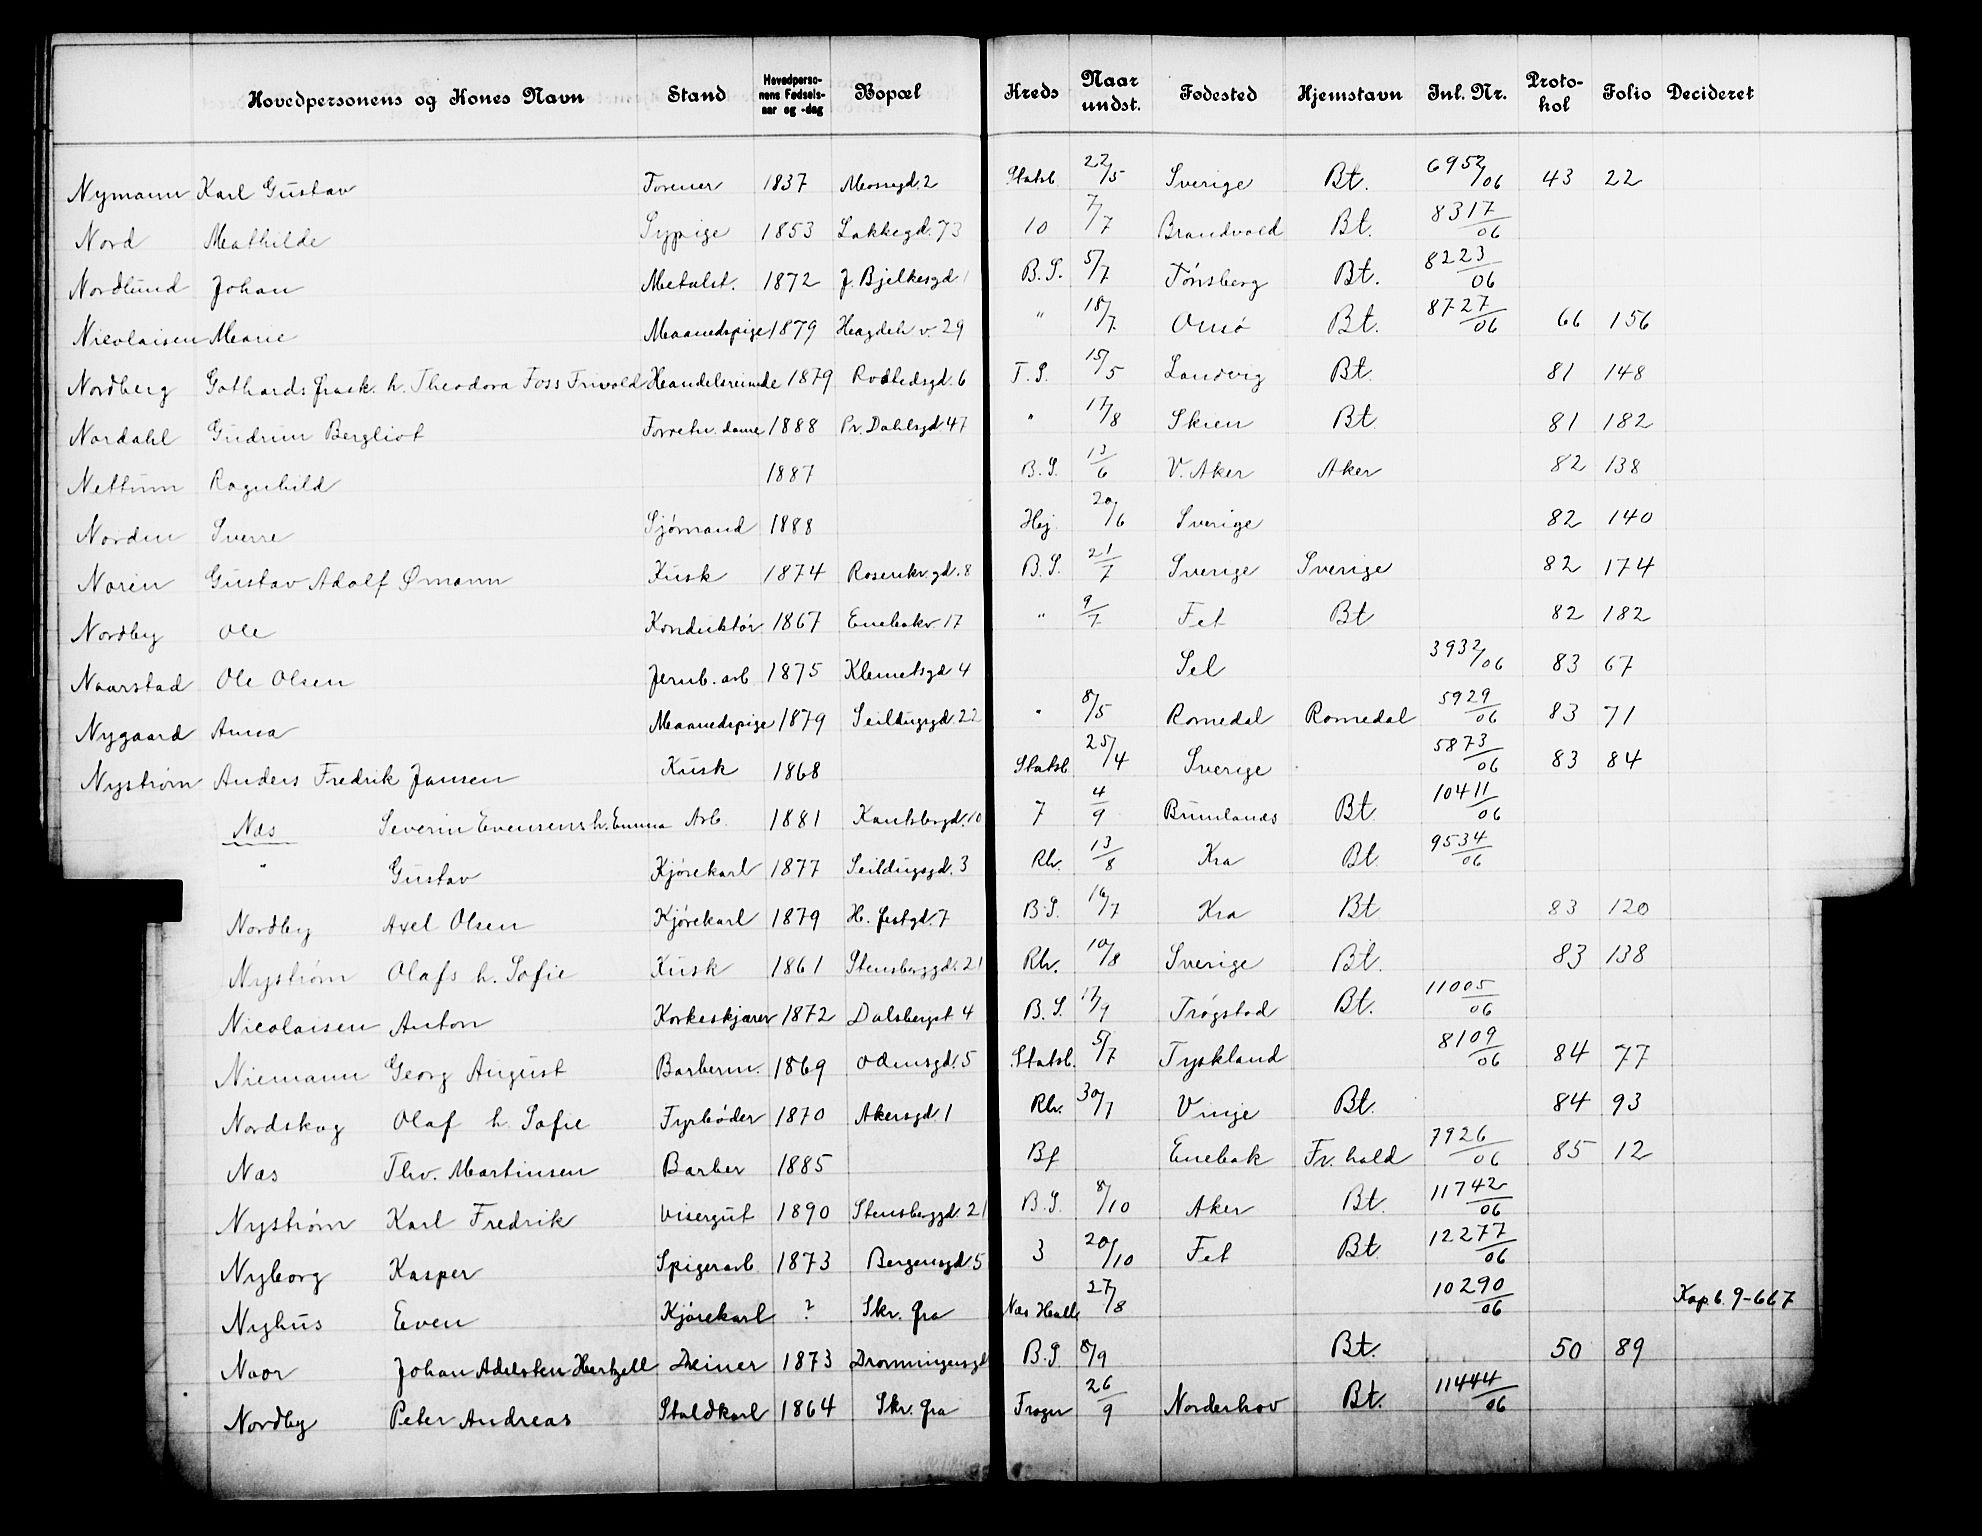 Hovedpersonens og Kones Navn | Stand | Hovedpersonens Fødselsaar og -dag | Bopæl | Kreds | Naar undst. | Fødested | Hjemstavn | Inl. Nr. | Protokol | Folio | Decideret
Nymann Karl Gustav | 1837 | Mossegd. 2 | Statsb. | 22/5 | Sverige | Bt. | 6952/06 | 43 | 22
Nord Mathilde | Sypige | 1853 | Lakkegd. 73 | 10 | 7/7 | Brandvold | Bt. | 8317/06
Nordlund Johan | Metalst. | 1872 | J. Bjelkesgd 1 | B.S. | 5/7 | Tönsberg | Bt. | 8223/06
Nicolaisen Marie | Maanedspige | 1879 | Heagdeh v. 29 | " | 18/7 | Onsö | Bt. | 8727/06 | 66 | 156
Nordberg Gothards frask. h. Theodora Foss Trivold | Handelsreisende | 1879 | Rodfedsgd. 6 | T.S. | 15/5 | Landvig | Bt. | 81 | 148
Nordahl Gudrun Bergliot | Forretn. dame | 1888 | Pr. Dahlsgd 47 | " | 17/8 | Skien | Bt. | 81 | 182
Nettum Ragnhild | 1887 | B.S. | 13/6 | V. Aker | Aker | 82 | 138
Norden Sverre | Sjömand | 1888 | Hej. | 20/6 | Sverige | 82 | 140
Noren Gustav Adolf Ømann | Kusk | 1874 | Rosenkr. gd. 8 | B.S. | 21/7 | Sverige | Sverige | 82 | 174
Nordby Ole | Konduktör | 1867 | Enebakv 17 | " | 9/7 | Fet | Bt | 82 | 182
Naarstad Ole Olsen | Jernb. arb | 1875 | Klemetsgd 4 | Sel | 3932/06 | 83 | 67
Nygaard Anna | Maanedspige | 1879 | Seildugsgd. 22 | " | 8/5 | Romedal | Romedal | 5929/06 | 83 | 71
Nyström Anders Fredrik Jansen | Kusk | 1868 | Statsb | 25/4 | Sverige | 5873/06 | 83 | 84
Næs Severin Evensens h. Emma | Arb. | 1881 | Kantsbergd. 10 | 7 | 4/9 | Brunlanæs | Bt. | 10411/06
" Gustav | Kjörekarl | 1877 | Seildugsgd. 3 | Rh. | 13/8 | Kra | Bt | 9534/06
Nordby Axel Olsen | Kjörekarl | 1879 | H. festgd. 7 | B.S. | 16/7 | Kra | Bt | 83 | 120
Nyström Olafs h. Sofie | Kusk | 1861 | Stensberggd. 21 | Rh. | 10/8 | Sverige | Bt. | 83 | 138
Nicolaisen Anton | Korkeskjærer | 1872 | Dalsbergst 4 | B.S. | 17/9 | Trögstad | Bt. | 11005/06
Niemann Georg August | Barberm. | 1869 | Odinsgd. 5 | Statsb. | 5/7 | Tyskland | 8109/06 | 84 | 77
Nordskog Olaf h. Sofie | Fyrböder | 1870 | Akersgd 1 | Rh. | 30/7 | Vinje | Bt. | 84 | 93
Næs Thv. Martinsen | Barber | 1885 | Bf | Enebak | Fr. hald | 7926/06 | 85 | 12
Nyström Karl Fredrik | Visergut | 1890 | Stensberggd. 21 | B.S. | 8/10 | Aker | Bt. | 11742/06
Nyborg Kasper | Spigerarb. | 1873 | Bergensgd 5 | 3 | 20/10 | Fet | Bt | 12277/06
Nyhus Even | Kjörekarl | ? | Skr. fra | Næs Hedm | 27/8 | 10290/06 | Kap 6. 9-667
Noor Johan Adelsten Hertzell | Dreiner | 1873 | Dronningensgd | B.S | 8/9 | Bt. | 50 | 89
Nordby Peter Andreas | Staldkarl | 1864 | Skr. fra | Frogn | 26/9 | Norderhov | Bt. | 11444/06